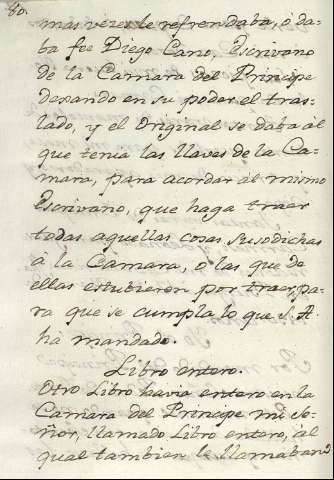 80.
mas vezes le refrendaba, ó da-
ba fee Diego Cano, Escrivano
de la Camara del Principe
dexando en su poder el tras-
lado, y el Original se daba al
que tenia las llaves de la Ca-
mara, para acordar al mismo
Escrivano, que haga traer
todas aquellas cosas susodichas
á la Camara, ó las que de
ellas estubieren por traer, pa-
ra que se cumpla lo que S. A.
ha mandado.
Libro entero.
Otro Libro havia entero en la
Camara del Principe mi Se-
ñor, llamado Libro entero, al
qual tambien le llamaban